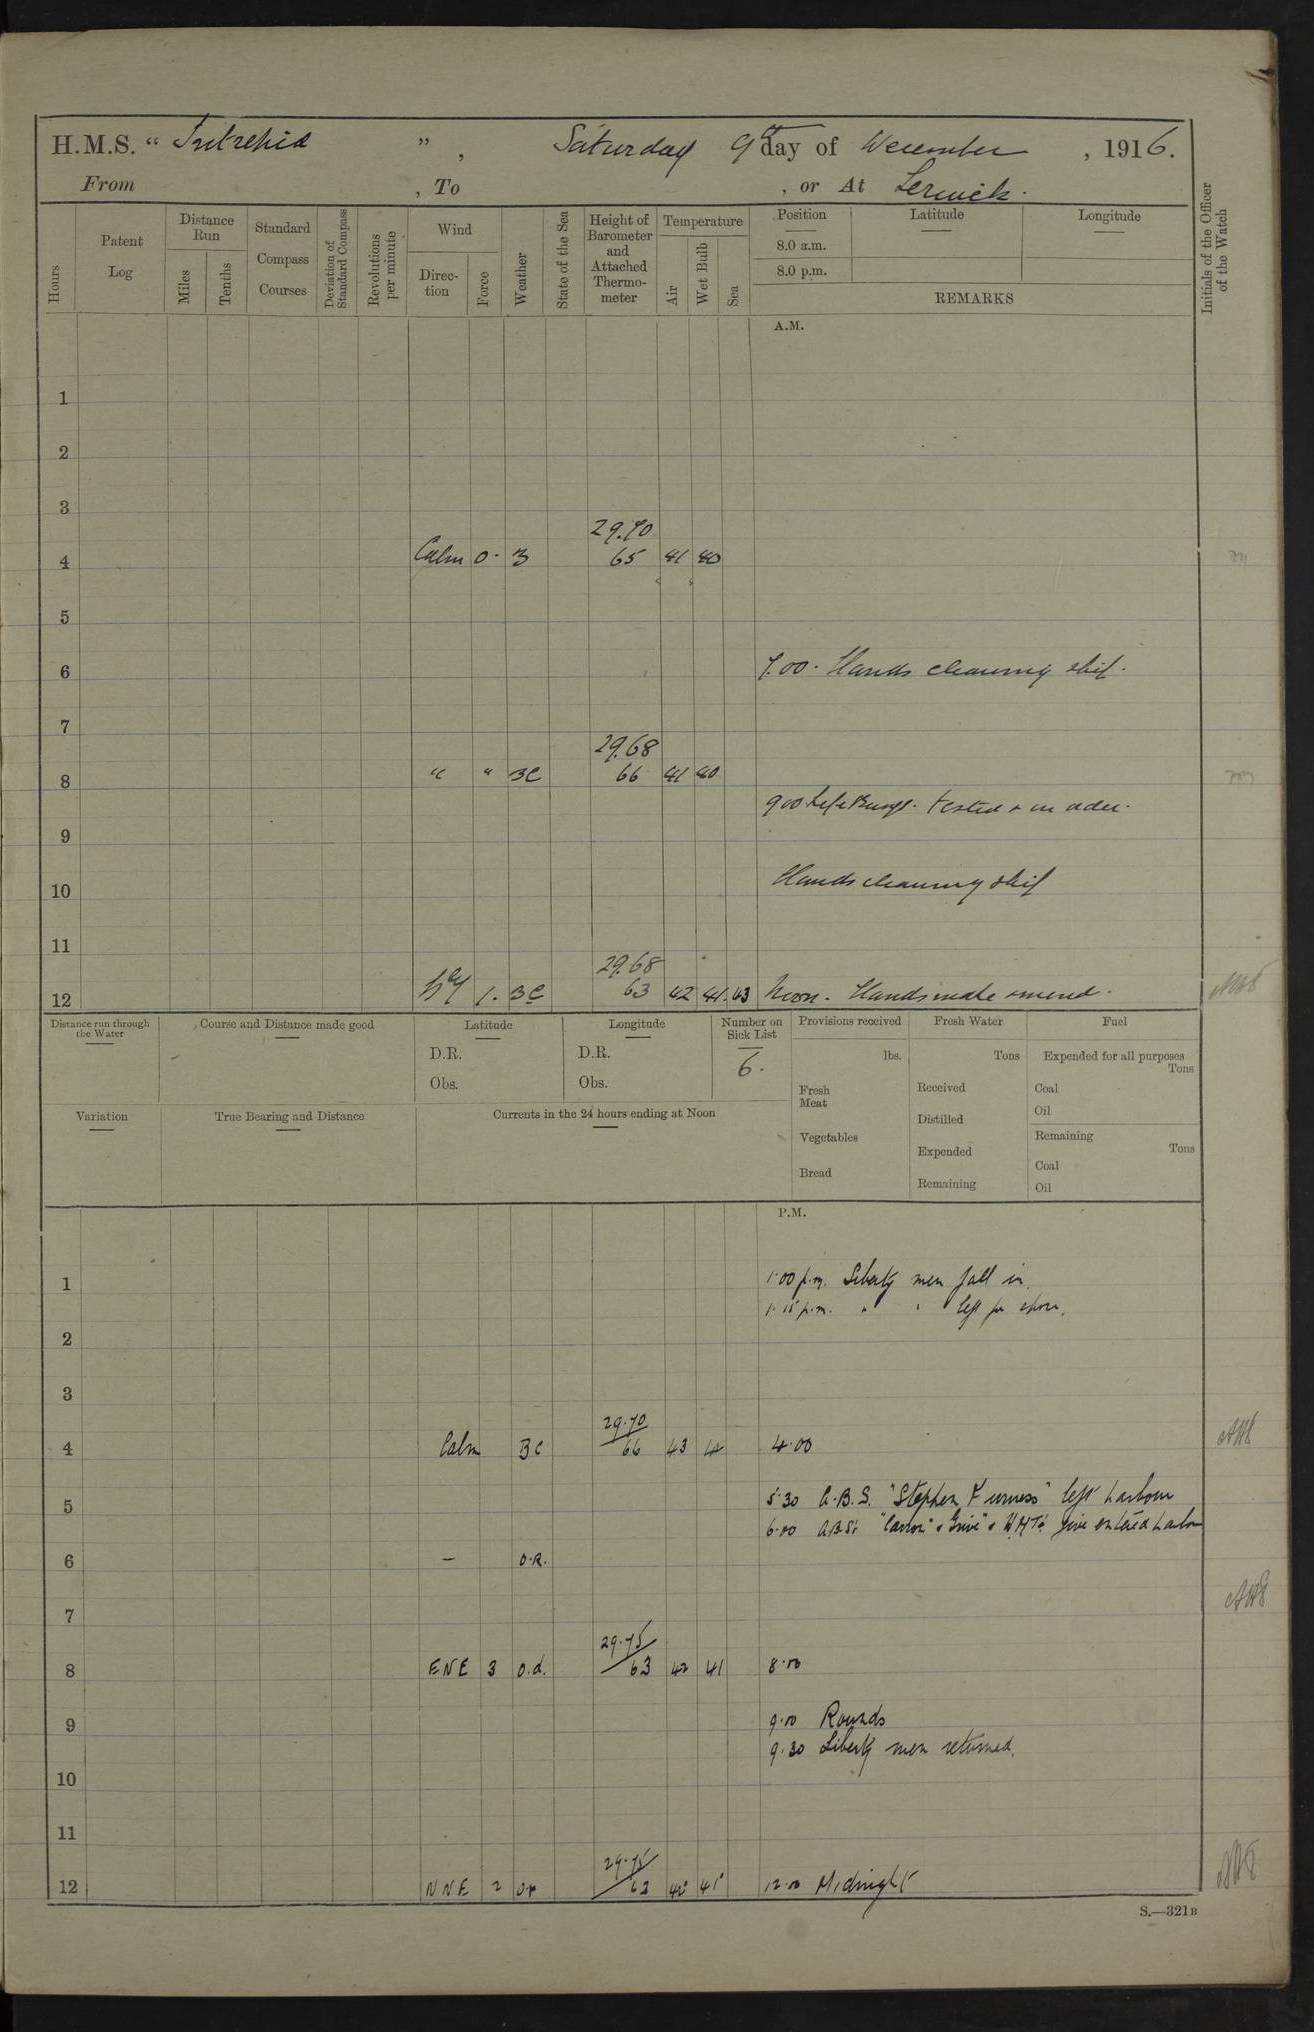 H.M.S. “ Intrepid ” , Saturday 9th day of December , 1916.
From , To , or At Lerwick.
Hours
Patent Log
Distance Run
Miles
Tenths
Standard Compass Courses
Deviation of Standard Compass
Revolutions per minute
Wind
Direction
Force
Weather
State of the Sea
Height of Barometer and Attached Thermometer
Temperature
Air
Wet Bulb
Sea
Position
8.0 a.m.
8.0 p.m.
Latitude
Longitude
REMARKS
Initials of the Officer of the Watch
A.M.
1
2
3
29.70
4 Calm 0. B 65 41 40
5
6 7.00. Hands cleaning ship.
7
29.68
8 " " BC 66 41 40
9.00 Life Buoys. tested & in order.
9
10 Hands cleaning ship
11
29.68
12 1. BC 63 42 41. 43 Noon. Hands make & mend.
Distance run through the Water
Course and Distance made good
Latitude
D.R.
Obs.
Longitude
D.R.
Obs.
Number on Sick List
6.
Provisions received
lbs.
Fresh Meat
Vegetables
Bread
Fresh Water
Tons
Received
Distilled
Expended
Remaining
Fuel
Expended for all purposes
Tons
Coal
Oil
Remaining
Tons
Coal
Oil
Variation
True Bearing and Distance
Currents in the 24 hours ending at Noon
P.M.
1 1.00 p.m. Liberty men fall in.
1.15 p.m. " " left for shore.
2
3
29.70
4 Calm BC 66 43 42 4.00
5 5.30 A.B.S. "Stephen Furness" left harbour
6.00 A.B.S: "Carron" & "Grive" & H.M.T's five entered harbour
6 — O.R.
7
29.75
8 ENE 3 O.d. 63 42 41 8.00
9 9.00 Rounds
9.30 Liberty men returned.
10
11
29.75
12 NNE 2 O.r 62 42 41 12.00 Midnight
S.—321B